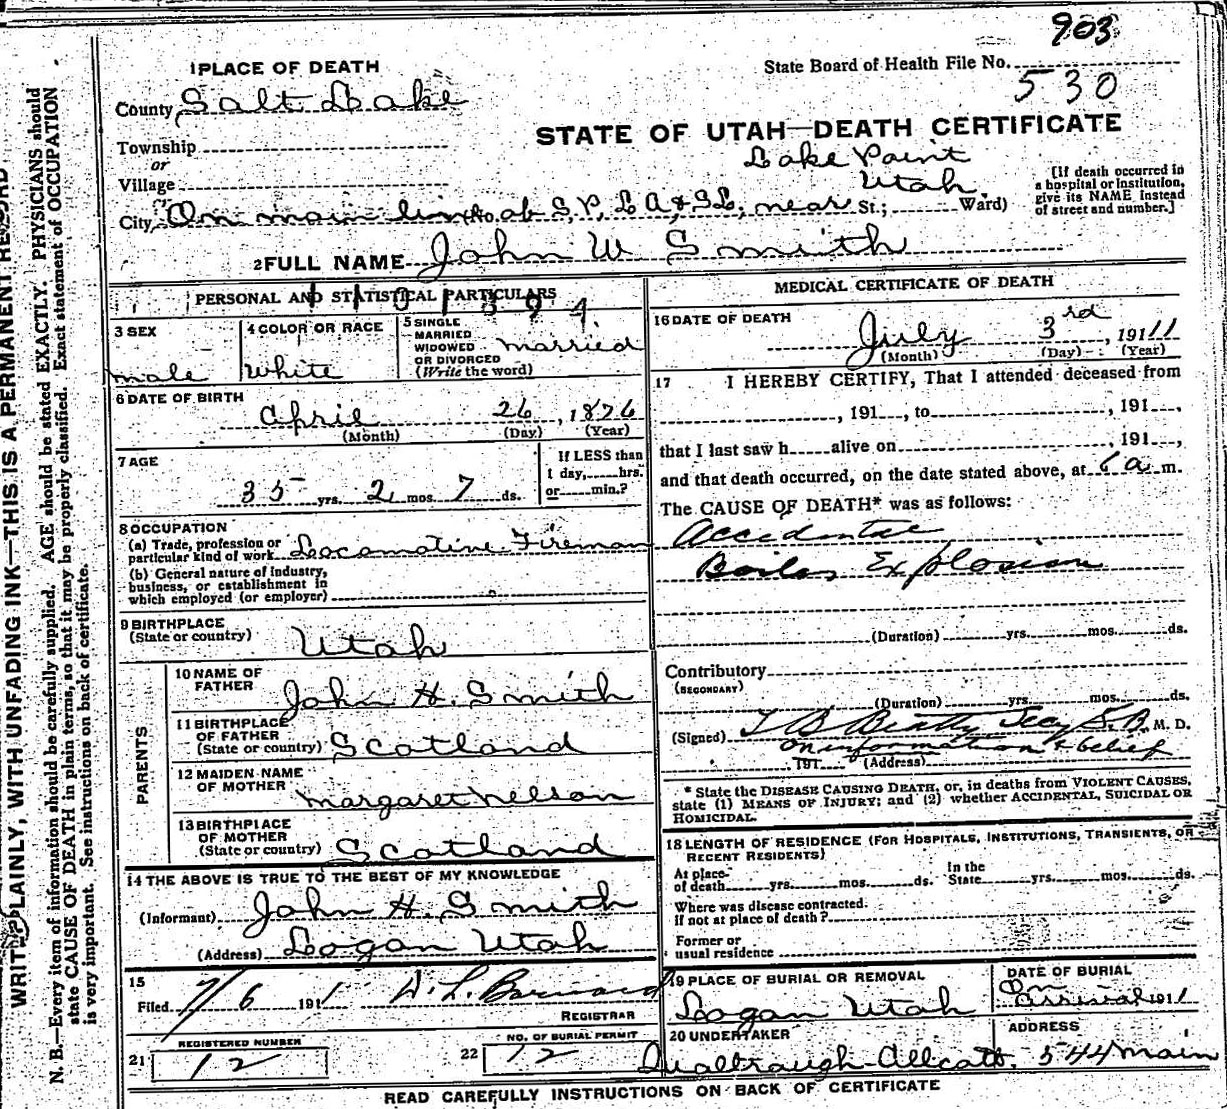 903
1 PLACE OF DEATH
State Board of Health File No. 530
County Salt Lake
STATE OF UTAH—DEATH CERTIFICATE
Township
or
Village
Lake Point
Utah.
[If death occurred in
a hospital or institution,
give its NAME instead
of street and number.]
City On main line (No. of S.P., L.A. & S.L., near St.; Ward)
2 FULL NAME John W Smith
PERSONAL AND STATISTICAL PARTICULARS
3 SEX
male
4 COLOR OR RACE
White
5 SINGLE
MARRIED
WIDOWED
OR DIVORCED
(Write the word)
married
6 DATE OF BIRTH
April 26, 1876
(Month) (Day) (Year)
7 AGE
35 yrs. 2 mos. 7 ds.
If LESS than
1 day, hrs.
or min.?
8 OCCUPATION
(a) Trade, profession or
particular kind of work Locomotive Fireman
(b) General nature of industry,
business, or establishment in
which employed (or employer)
9 BIRTHPLACE
(State or country) Utah
PARENTS
10 NAME OF
FATHER John H. Smith
11 BIRTHPLACE
OF FATHER
(State or country) Scotland
12 MAIDEN NAME
OF MOTHER Margaret Nelson
13 BIRTHPLACE
OF MOTHER
(State or country) Scotland
14 THE ABOVE IS TRUE TO THE BEST OF MY KNOWLEDGE
(Informant) John H. Smith
(Address) Logan Utah
15
Filed 7/6 1911
REGISTRAR
21 REGISTERED NUMBER
12
22 NO. OF BURIAL PERMIT
12
MEDICAL CERTIFICATE OF DEATH
16 DATE OF DEATH
July 3rd, 1911
(Month) (Day) (Year)
17 I HEREBY CERTIFY, That I attended deceased from
, 191 , to , 191 ,
that I last saw h alive on , 191 ,
and that death occurred, on the date stated above, at 6 a m.
The CAUSE OF DEATH* was as follows:
Accidental
Boiler Explosion
(Duration) yrs. mos. ds.
Contributory
(SECONDARY)
(Duration) yrs. mos. ds.
(Signed) T B Beatty Secy S.B. M. D.
On information & belief
, 191 (Address)
* State the DISEASE CAUSING DEATH, or, in deaths from VIOLENT CAUSES,
state (1) MEANS OF INJURY; and (2) whether ACCIDENTAL, SUICIDAL OR
HOMICIDAL.
18 LENGTH OF RESIDENCE (FOR HOSPITALS, INSTITUTIONS, TRANSIENTS, OR
RECENT RESIDENTS)
At place
of death yrs. mos. ds.
In the
State yrs. mos. ds.
Where was disease contracted.
if not at place of death?
Former or
usual residence
19 PLACE OF BURIAL OR REMOVAL
Logan Utah
DATE OF BURIAL
On
arrival 1911
20 UNDERTAKER
ADDRESS
544 Main
READ CAREFULLY INSTRUCTIONS ON BACK OF CERTIFICATE
WRITE PLAINLY, WITH UNFADING INK—THIS IS A PERMANENT RECORD.
N. B.—Every item of information should be carefully supplied. AGE should be stated EXACTLY. PHYSICIANS should
state CAUSE OF DEATH in plain terms, so that it may be properly classified. Exact statement of OCCUPATION
is very important. See instructions on back of certificate.